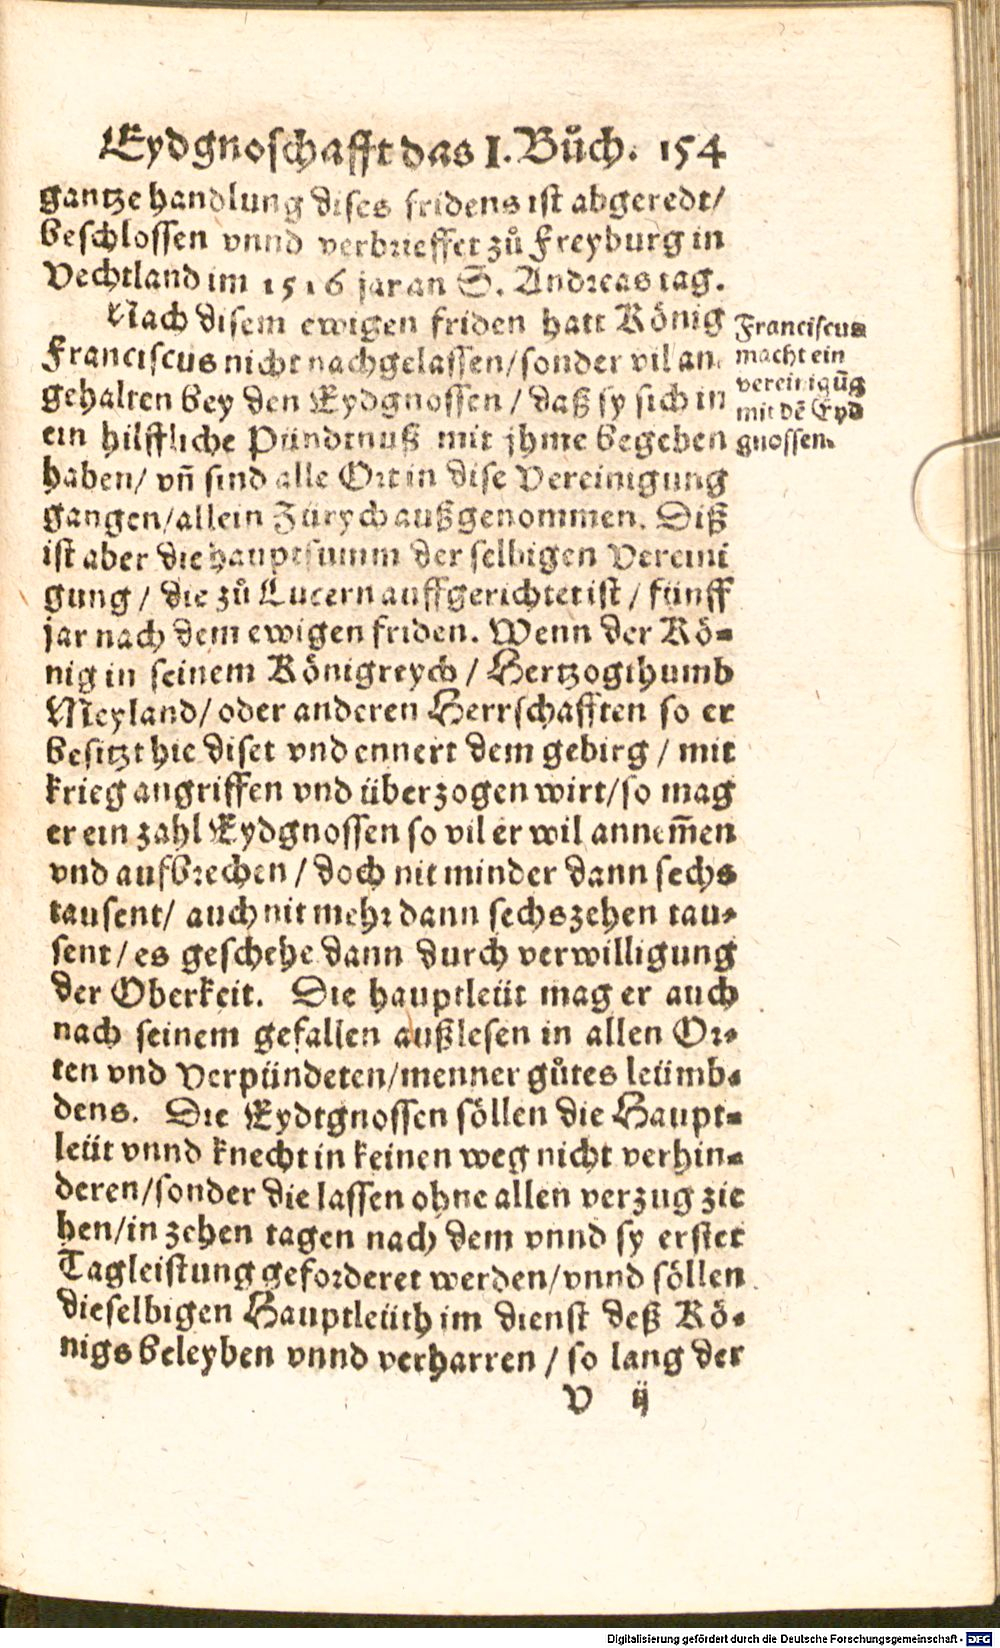 Eydgnoschafft das I. Bůch. 154
gantze handlung dises fridens ist abgeredt/
beschlossen vnnd verbrieffet zů Freyburg in
Vechtland im 1516 jar an S. Andreas tag.
Nach disem ewigen friden hatt König
Franciscus nicht nachgelassen/sonder vil an
gehalten bey den Eydgnossen / daß sy sich in
ein hilffliche Pündtnuß mit jhme begeben
haben/ vñ sind alle Ort in dise Vereinigung
gangen/allein Zürych außgenommen. Diß
ist aber die hauptsumm der selbigen Vereini
gung / die zů Lucern auffgerichtet ist / fünff
jar nach dem ewigen friden. Wenn der Kö-
nig in seinem Königreych / Hertzogthumb
Meyland/ oder anderen Herrschafften so er
besitzt hie diset vnd ennert dem gebirg / mit
krieg angriffen vnd überzogen wirt/so mag
er ein zahl Eydgnossen so vil er wil annem̃en
vnd aufbrechen / doch nit minder dann sechs
tausent/ auch nit mehr dann sechszehen tau-
sent / es geschehe dann durch verwilligung
der Oberkeit. Die hauptleüt mag er auch
nach seinem gefallen außlesen in allen Or-
ten vnd Verpündeten/menner gůtes leümb-
dens. Die Eydtgnossen söllen die Haupt-
leüt vnnd knecht in keinen weg nicht verhin-
deren/sonder die lassen ohne allen verzug zie
hen/in zehen tagen nach dem vnnd sy erstet
Tagleistung geforderet werden/vnnd söllen
dieselbigen Hauptleüth im dienst deß Kö-
nigs beleyben vnnd verharren / so lang der
V ij
Franciscus
macht ein
vereinigũg
mit dẽ Eyd
gnossen.
Digitalisierung gefördert durch die Deutsche Forschungsgemeinschaft - DFG